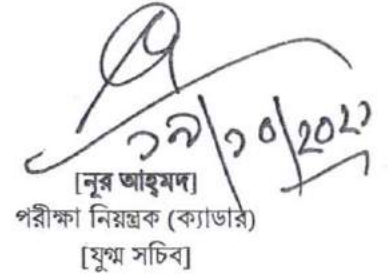 ১৯/১০/২০২১
[নূর আহ্‌মদ]
পরীক্ষা নিয়ন্ত্রক (ক্যাডার)
[যুগ্ম সচিব]